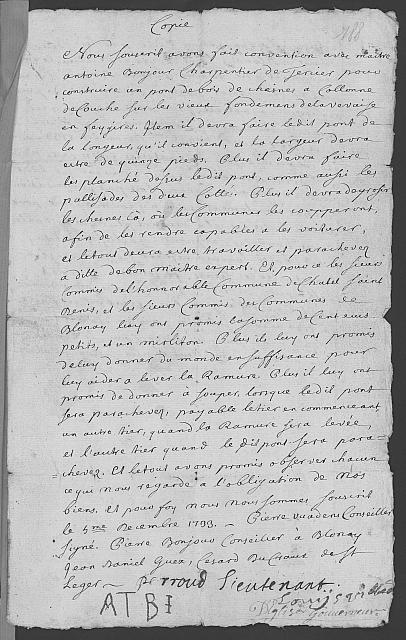 Copie
Nous souscrit avons fait convention avec maitre
antoine Bonjour Charpentier de pour
construire un pont de bois de chesnes a Collonne
de Couche sur les vieux fondemens de la vevaise
en feygires. Item il devra faire ledit pont de
la longeur, qu'il convient, et la largeur devra
estre de quinze pieds. Plus il devra faire
les planché dessus le dit pont, comme aussi les
pallisades des deux Cotté. Plus il devra
les chesnes là, ou les Communes les coupperont,
afin de les rendre capables a les voiturer,
et le tout devra estre travailler et parachever
a ditte de bon maitre expert. Et pour ce les Sieurs
Commis de l'honnorable Commune de Chatel Saint
Denis, et les Sieurs Commis des Communes de
Blonay luy ont promis la somme de Cent ecus
petits, et un mirliton. Plus ils luy ont promis
de luy donner du monde en suffisence pour
luy aider a lever la Ramure. Plus il luy ont
promis de donner a souper, lorsque le dit pont
sera parachever, payable le tier en commenceant
un autre tier, quand la Ramure sera levée,
et l'autre tier quand le dit pont sera para=
=chever. Et le tout avons promis observer chacun
ce qui nous regarde a l'obligation de Nos
biens. Et pour foy nous Nous sommes souscrit
le 5me Decembre 1733. — Pierre Conseiller
Signé. Pierre Bonjour Conseilier à Blonay
Jean Daniel Guex, Cesard DuCraux de St
Leger — Lieutenant
ATBI
Gouverneur